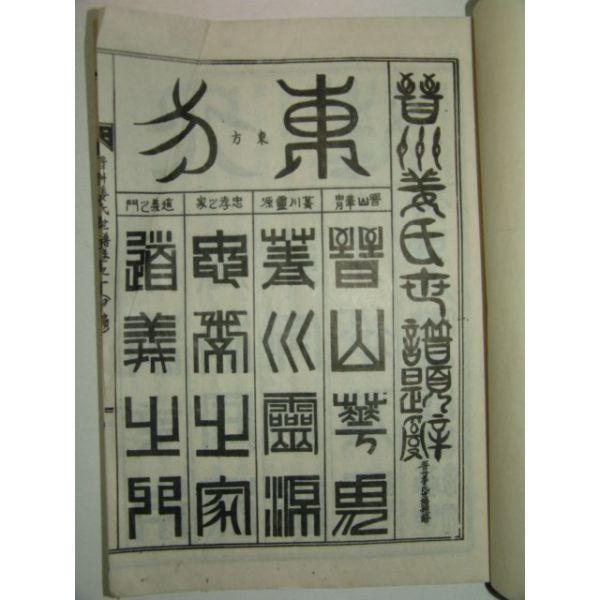 晉州姜氏世譜
東方
東方
晉山華冑
菁川靈源
忠孝之家
道義之門
晉山華冑
菁川靈源
忠孝之家
道義之門
晉州姜氏世譜卷之一